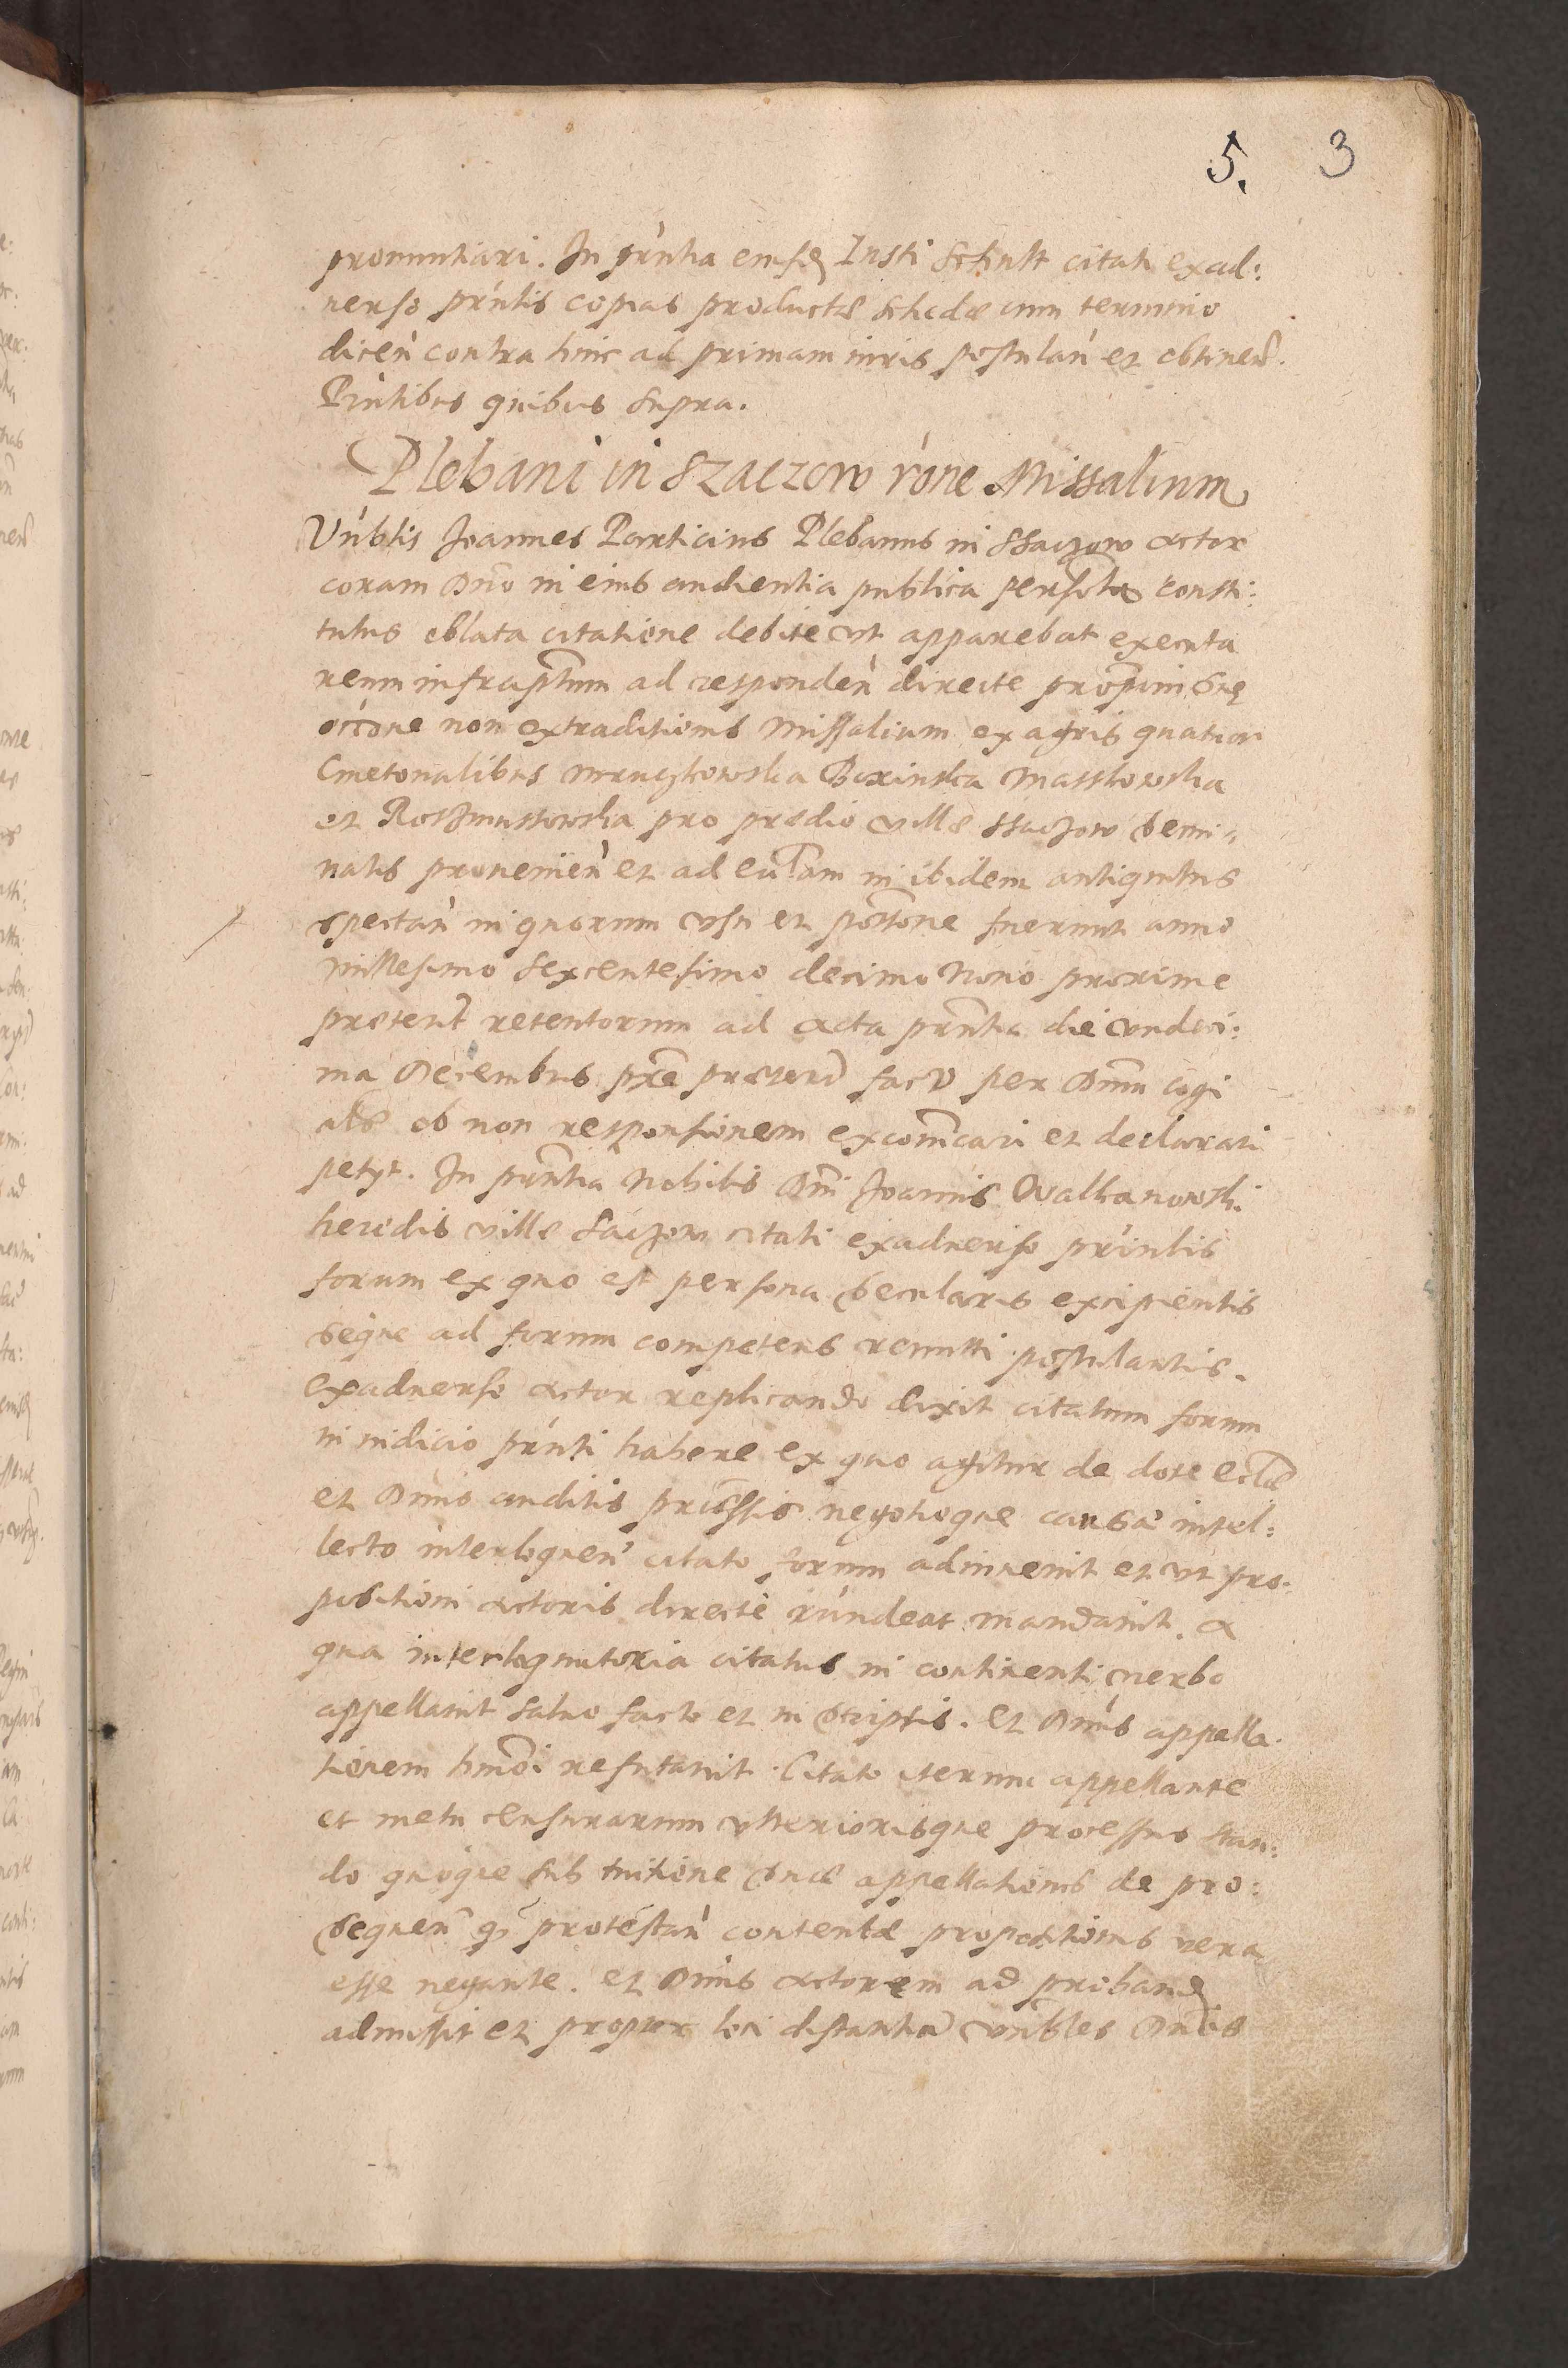 5. 3
pronuntiari. In pn̄tia eiusd Iusti Schult citati exad:
uerso pn̄tis copias productæ schedæ cum termino
dicen̄ contra hinc ad primam iuris postulan̄ et obtinen̄.
Pn̄tibus quibus supra.
Plebani in Szaczow rōne Missalium
Vn̄blis Joannes Particius Plebanus in Szaczow actor
coram Dn̄o in eius audientia publica personlr consti:
tutus oblata citatione debite ut apparebat executa
reum infraptum ad responden̄ directe propn̄i suæ
occōne non extraditionis missalium ex agris quatuor
Cmetonalibus Boxinska Masslowska
et pro prædio villæ Ssaczow semi:
natis prouenien̄ et ad ecclam in ibidem antiquitus
spectan̄ in quorum usu et possōne fuerunt anno
millesimo sexcentesimo decimo nono proxime
præterit retentorum ad acta pn̄tia die undeci:
ma Decembris pxe præterit fact per Dnum cogi
als ob non responsionem excomcari et declarari
petyt. In pn̄tia Nobilis Dni Joannis Walkanowski
heredis villæ Saczow citati exaduerso pn̄tis
forum ex quo est persona secularis excipientis
seque ad forum competens remitti postulantis.
Exaduerso actor replicando dixit citatum forum
in iudicio pn̄ti habere ex quo agitur de dote ecclæ
et Dnus auditis præmissis negotioque causæ intel:
lecto interloquen̄ citato forum adinuenit et ut pro:
positioni actoris directe rn̄deat mandauit. A
qua interloquutoria citatus in continenti uerbo
appellauit saluo facto et in scriptis. Et Dnus appella.
tionem hmōi refutauit. Citato iterum appellante
et metu censurarum ulteriorisque processus stan:
do quoque sub tuitione suæ appellationis de pro:
sequen̄ protestan̄ contenta propositionis uera
esse negante. Et Dnus actorem ad proband
admissit et propter loci distantiā vn̄bles Dn̄os